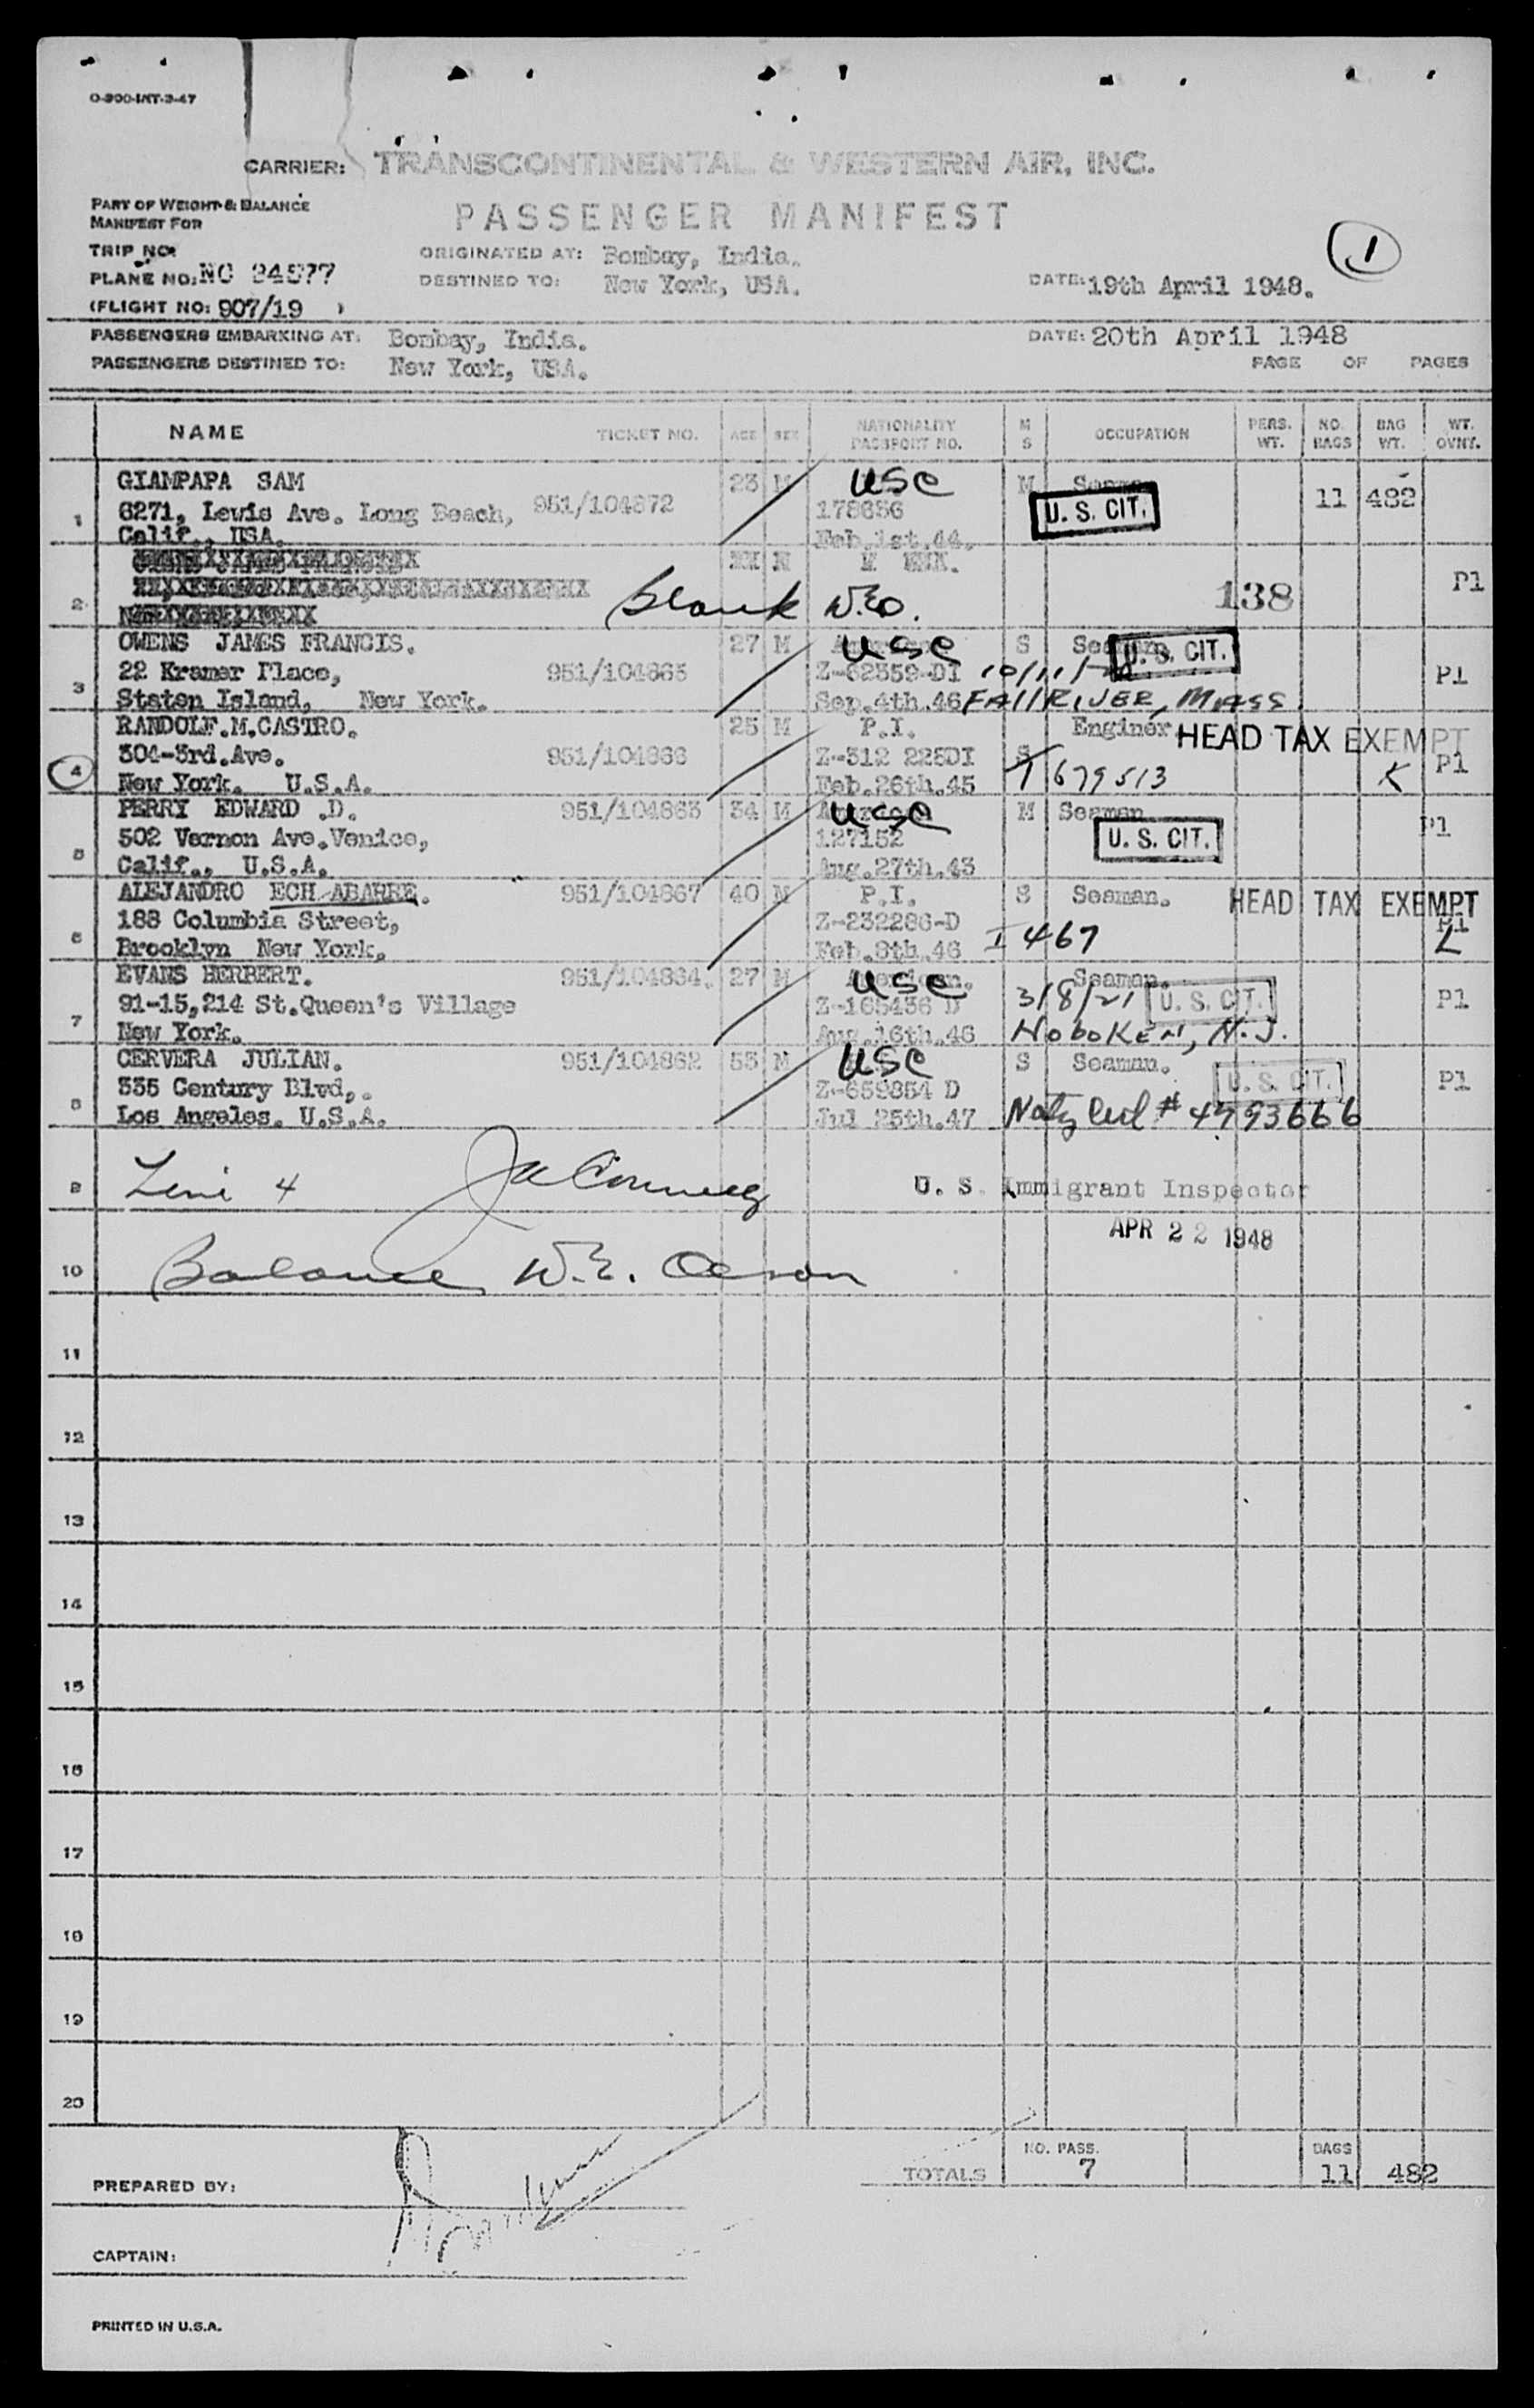 O-900-INT-3-47
CARRIER: TRANSCONTINENTAL & WESTERN AIR, INC.
PART OF WEIGHT & BALANCE
MANIFEST FOR
PASSENGER MANIFEST
1
TRIP NO:
ORIGINATED AT: Bombay, India.
PLANE NO: NC
DESTINED TO: New York, USA.
DATE: 19th April 1948.
(FLIGHT NO: 907/19 )
PASSENGERS EMBARKING AT: Bombay, India.
DATE: 20th April 1948
PASSENGERS DESTINED TO: New York, USA.
PAGE OF PAGES
NAME TICKET NO. AGE SEX NATIONALITY PASSPORT NO. M S OCCUPATION PERS. WT. NO. BAGS BAG WT. WT. OVNT.
GIAMPAPA SAM 23 M USC M Seaman 11 482
6271, Lewis Ave. Long Beach, 951/104872 178686 U. S. CIT.
1 Calif., USA. Feb.1st.44.
2 Blank W.E.O. 138 P1
OWENS JAMES FRANCIS. 27 M American USC S Seaman. U. S. CIT.
22 Kramer Place, 951/104865 Z-62359-DI 10/11/20 P1
3 Staten Island, New York. Sep.4th.46 FALL RIVER, MASS
RANDOLF.M.CASTRO. 25 M P.I. Enginer. HEAD TAX EXEMPT
304-3rd.Ave. 951/104866 Z-312 225DI S P1
4 New York. U.S.A. Feb.26th.45 T 679513 K
PERRY EDWARD .D. 951/104863 34 M American USC M Seaman P1
502 Vernon Ave.Venice, 127152 U. S. CIT.
5 Calif., U.S.A. Aug.27th.43
ALEJANDRO ECH ABARRE. 951/104867 40 M P.I. S Seaman. HEAD TAX EXEMPT
188 Columbia Street, Z-232286-D P1
6 Brooklyn New York. Feb.8th.46 I 467 L
EVANS HERBERT. 951/104864. 27 M American. USC Seaman.
91-15,214 St.Queen's Village Z-165436 D 3/8/21 U. S. CIT. P1
7 New York. Aug.16th.46 HOBOKEN, N.J.
CERVERA JULIAN. 951/104862 55 M USC S Seaman.
335 Century Blvd,. Z-659854 D U. S. CIT. P1
8 Los Angeles. U.S.A. Jul 25th.47 Natz Cert # 4793666
9 Line 4 U. S. Immigrant Inspector
APR 22 1948
10 Balance W.E.
11
12
13
14
15
16
17
18
19
20
NO. PASS. BAGS
TOTALS 7 11 482
PREPARED BY:
CAPTAIN:
PRINTED IN U.S.A.